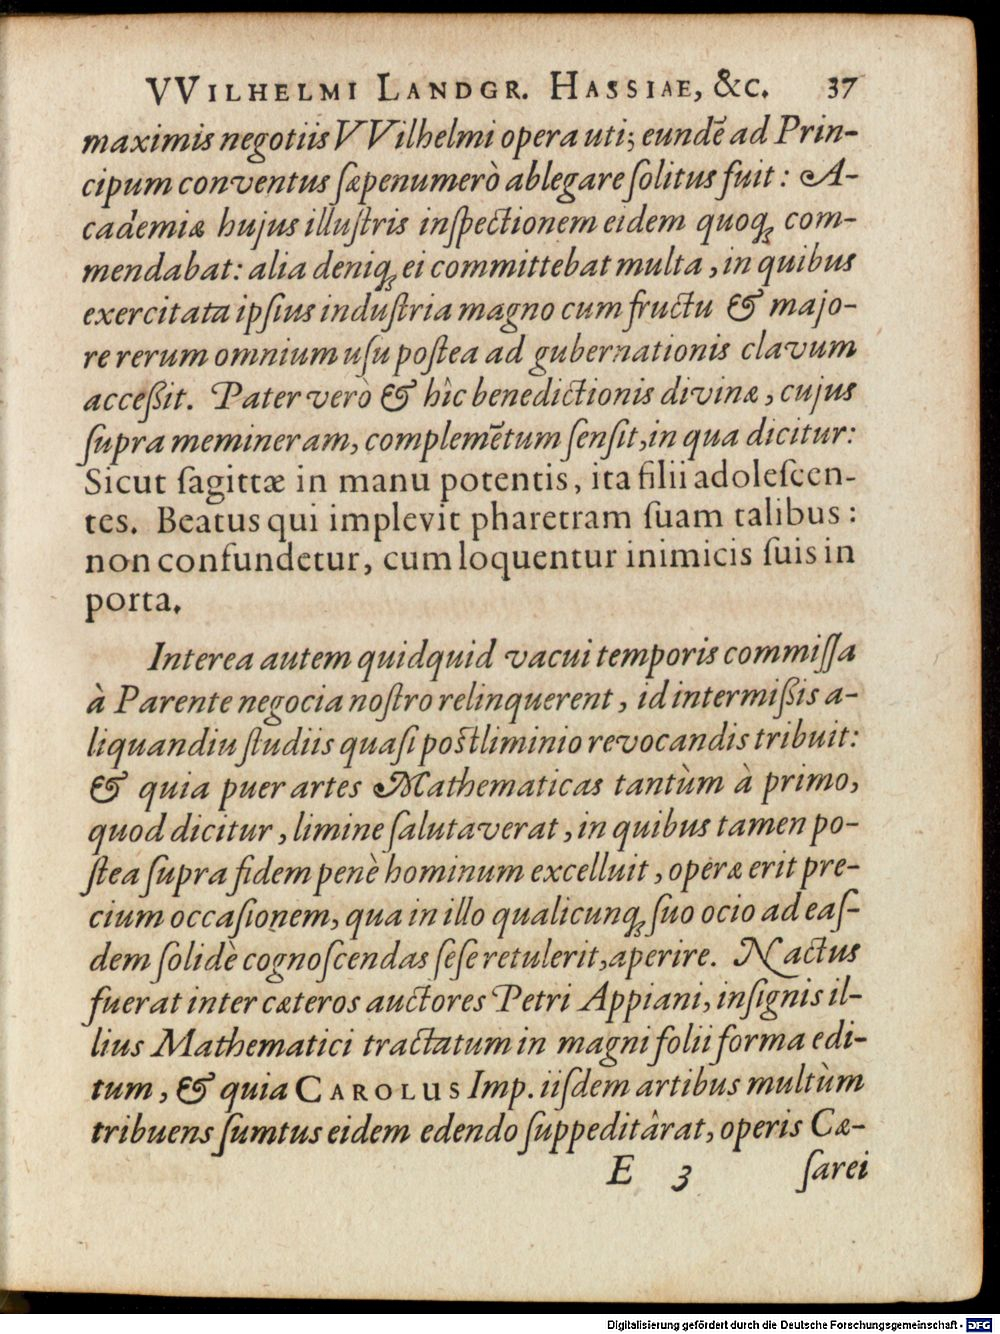 VVILHELMI LANDGR. HASSIAE, &C. 37
maximis negotiis VVilhelmi opera uti; eundẽ ad Prin-
cipum conventus ſæpenumerò ablegare ſolitus fuit: A-
cademiæ hujus illuſtris inſpectionem eidem quoq; com-
mendabat: alia deniq; ei committebat multa, in quibus
exercitata ipſius induſtria magno cum fructu & majo-
re rerum omnium uſu poſtea ad gubernationis clavum
acceßit. Pater verò & hîc benedictionis divinæ, cujus
ſupra memineram, complemẽtum ſenſit, in qua dicitur:
Sicut ſagittæ in manu potentis, ita filii adoleſcen-
tes. Beatus qui implevit pharetram ſuam talibus:
non confundetur, cum loquentur inimicis ſuis in
porta.
Interea autem quidquid vacui temporis commiſſa
à Parente negocia noſtro relinquerent, id intermißis a-
liquandiu ſtudiis quaſi poſtliminio revocandis tribuit:
& quia puer artes Mathematicas tantùm à primo,
quod dicitur, limine ſalutaverat, in quibus tamen po-
ſtea ſupra fidem penè hominum excelluit, operæ erit pre-
cium occaſionem, qua in illo qualicunq; ſuo ocio ad eaſ-
dem ſolidè cognoſcendas ſeſe retulerit, aperire. Nactus
fuerat inter cæteros auctores Petri Appiani, inſignis il-
lius Mathematici tractatum in magni folii forma edi-
tum, & quia CAROLUS Imp. iiſdem artibus multùm
tribuens ſumtus eidem edendo ſuppeditârat, operis Cæ-
E 3 ſarei
Digitalisierung gefördert durch die Deutsche Forschungsgemeinschaft - DFG